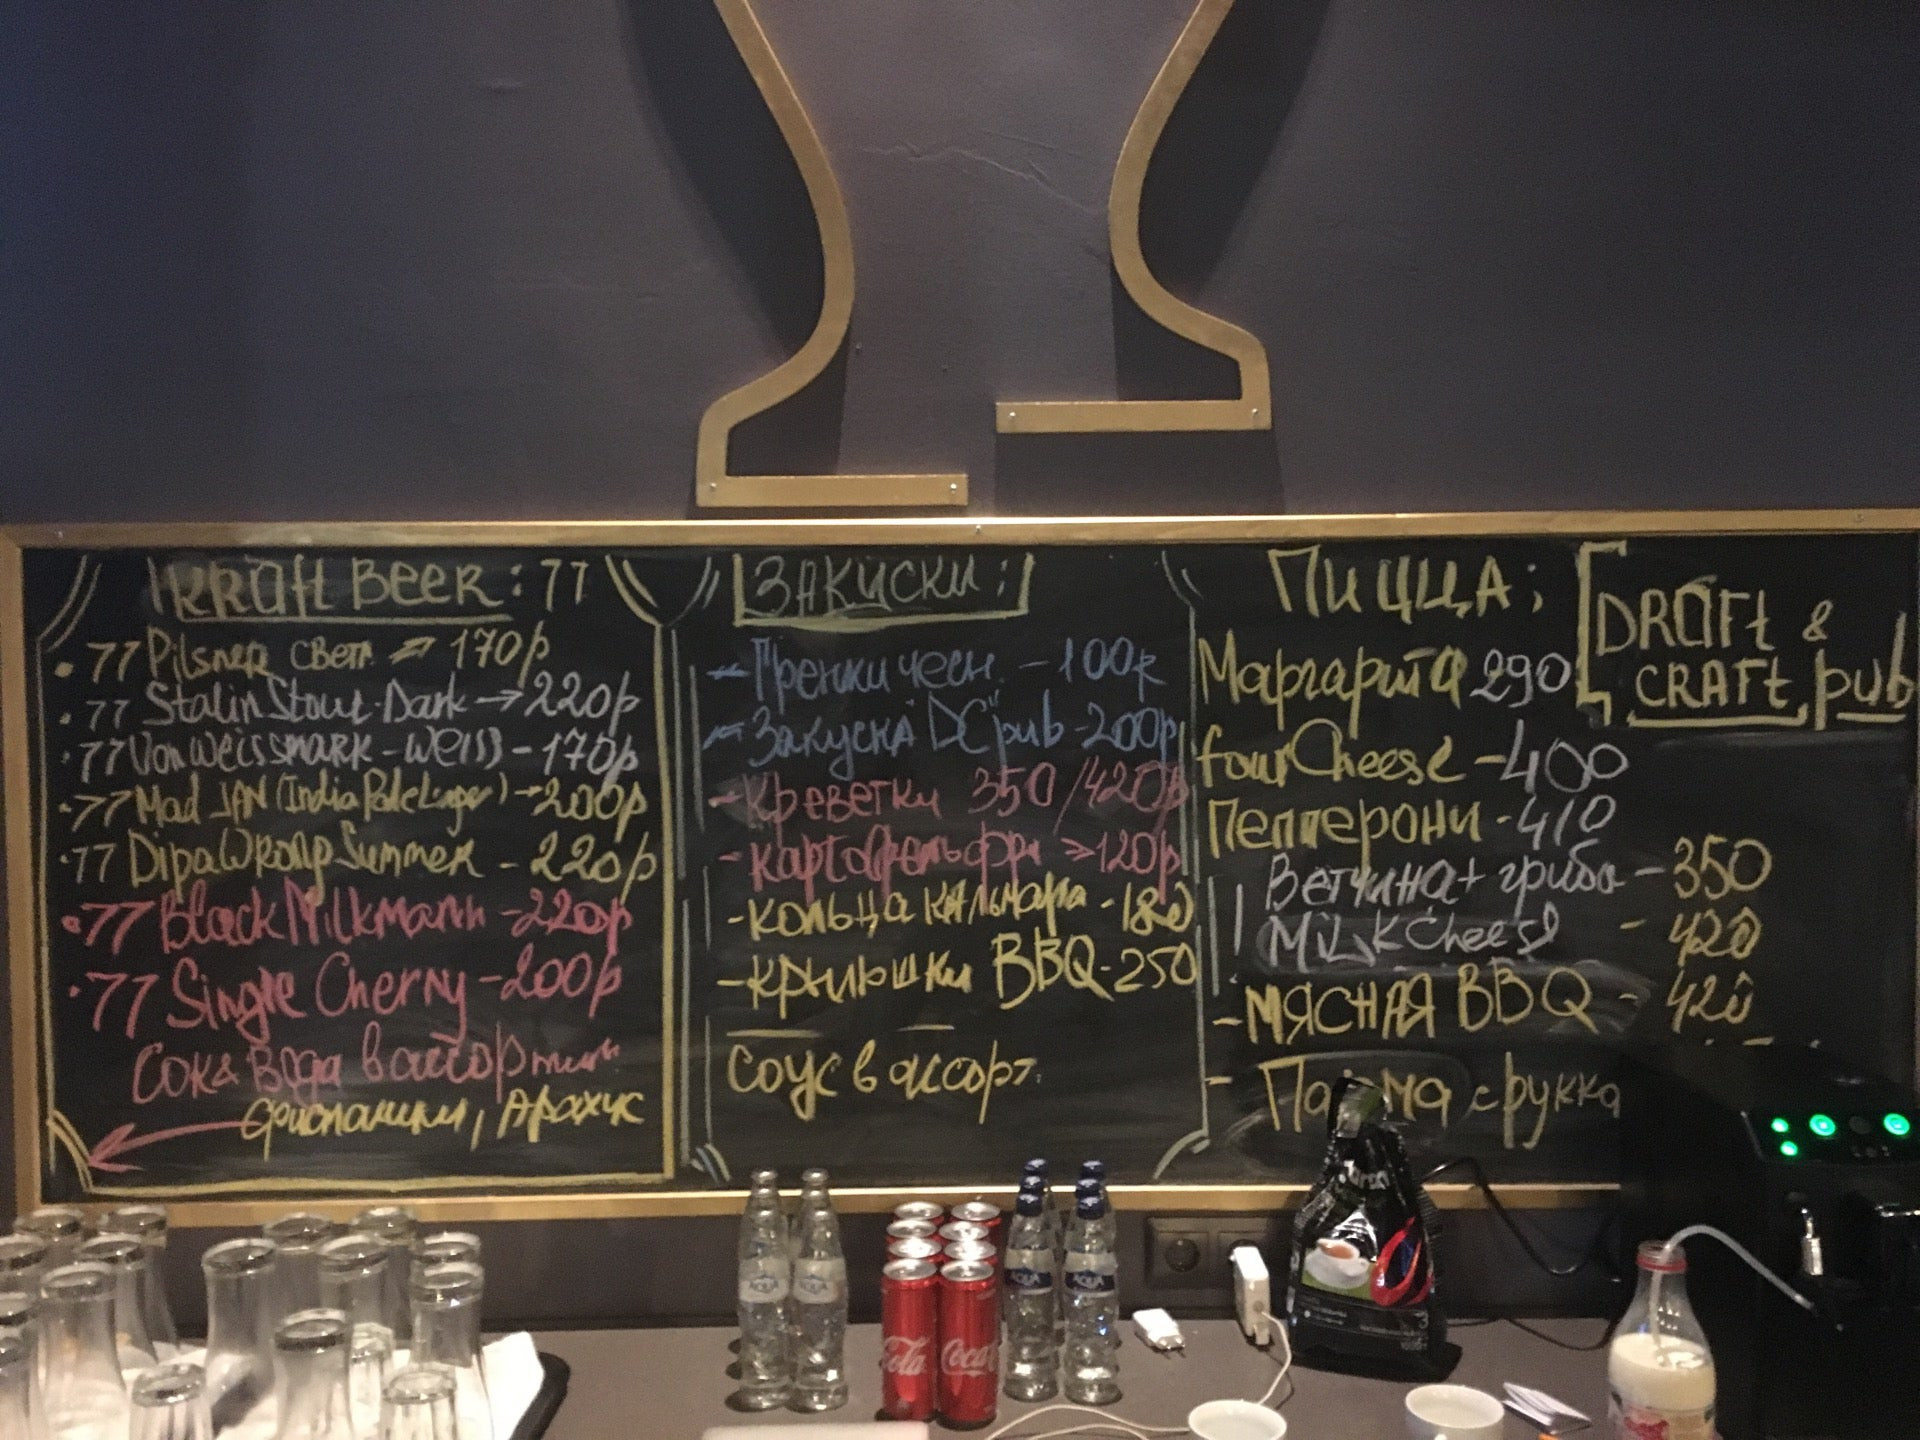 KRAft BEER: 77
• 77 Pilsner свет. ⇒ 170р
• 77 Stalin Stout-Dark → 220р
• 77 Von Weissmark - Weiss - 170р
• 77 Mad JAN (India Pale Lager) → 200р
• 77 Dipa Wrong Summer - 220р
• 77 Black Milkmann - 220р
• 77 Single Cherry - 200р
Сок & Вода в ассортим.
фисташки, Арахис
ЗАКУСКИ:
- Гренки чесн. - 100р
- Закуска DC"pub - 200р
- Креветки 350/420р
- Картофель фри > 120р
- кольца кальмара - 180
- крылышки BBQ - 250
соус в ассорт.
ПиццА:
Маргарита 290
fourCheese - 400
Пепперони - 410
Ветчина + грибы - 350
MiLk Cheese - 420
- МЯСНАЯ BBQ - 420
- Парма с рукка
DRAft &
CRAft pub
AQUA
AQUA
Cola
Coca
AQUA
AQUA